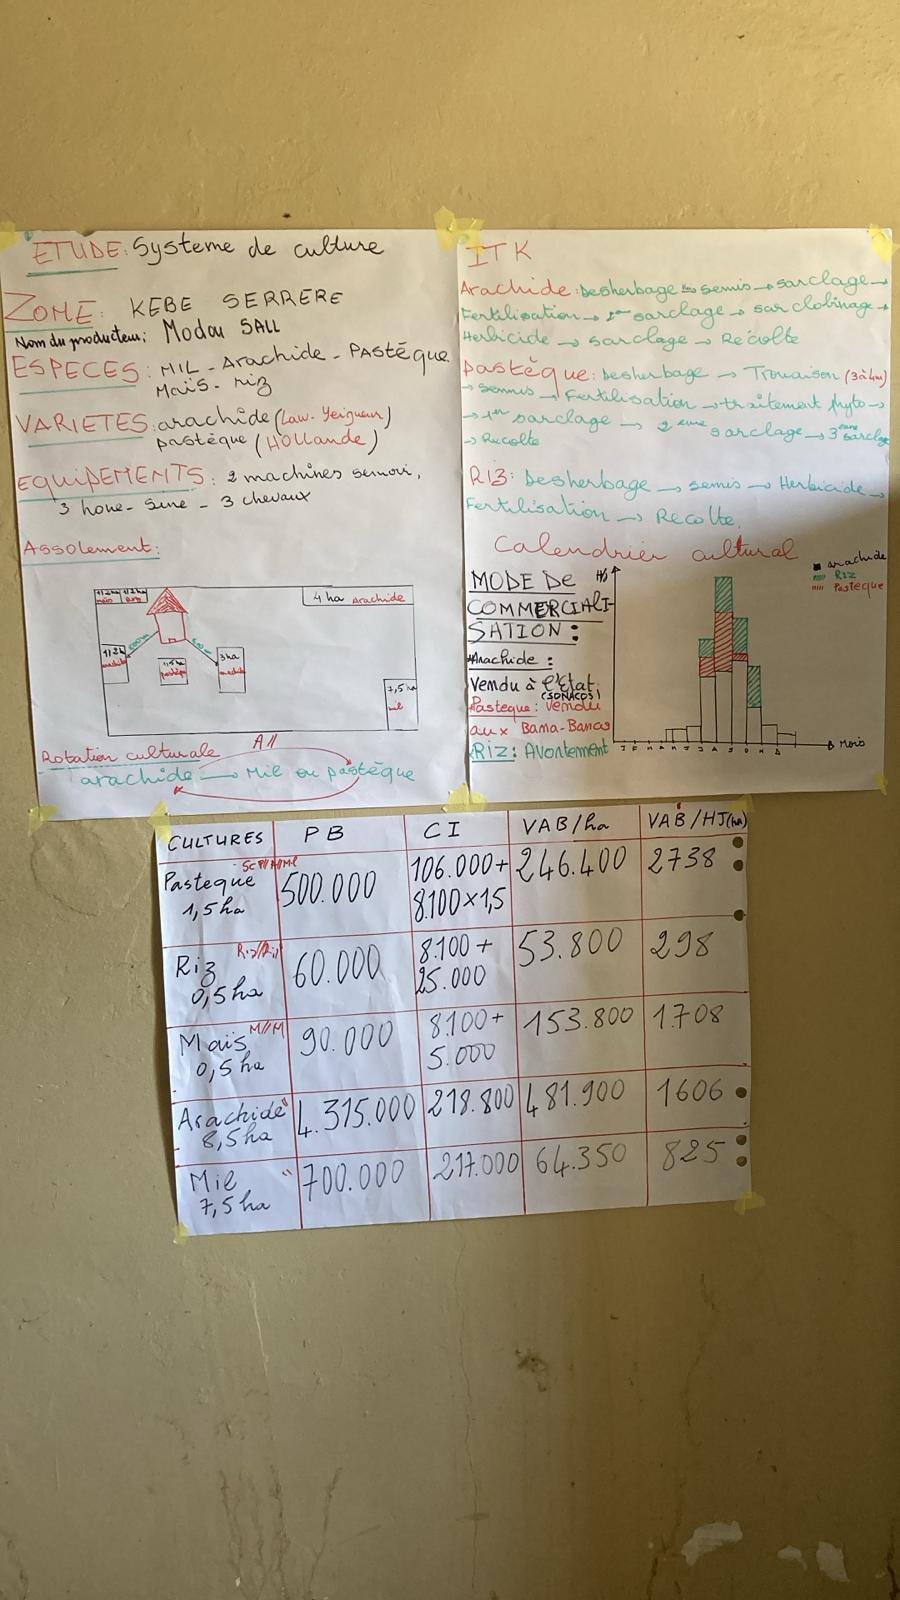 ETUDE: Systeme de culture
ZONE: KEBE SERRERE
Nom du producteur: Modou SALL
ESPECES: MIL - Arachide - PASTÈQUE
Maïs - riz
VARIETES: arachide (Law-Yeigneur)
pastèque (HOLLANDE)
EQUIPEMENTS: 2 machines semoi,
3 houe-Sine - 3 chevaux
Assolement:
1/2ha 1/2ha
maïs
4 ha Arachide
1/2h
1,5ha
pastèque
3ha
7,5 ha
mil
Rotation culturale A//
arachide → Mil ou pastèque
ITK
Arachide: Desherbage → semis → sarclage →
Fertilisation → sarclage → sarclobinage →
Herbicide → sarclage → Récolte
Pastèque: Desherbage → Trouaison (3à4m)
→ semis → Fertilisation → traitement phyto →
→ 1er sarclage → 2eme sarclage → 3eme sarclage
→ Recolte
RIZ: Desherbage → semis → Herbicide →
Fertilisation → Recolte.
Calendrier cultural
arachide
Riz
Pasteque
MODE DE
COMMERCIALI-
SATION:
Arachide:
Vendu à l'Etat
(SONACOS)
Pasteque: Vendu
aux Bana-Banas
Riz: Avontement
HJ
J F M A M J J A S O N D Mois
CULTURES PB CI VAB/ha VAB/HJ(ha)
Pasteque 500.000 106.000+ 246.400 2738
1,5ha 8.100×1,5
Riz Riz//Riz 60.000 8.100 + 53.800 298
0,5ha 25.000
Maïs M//M 90.000 8.100+ 153.800 1.708
0,5ha 5.000
Arachide" 4.315.000 218.800 481.900 1606
8,5ha
Mil " 700.000 217.000 64.350 825
7,5ha